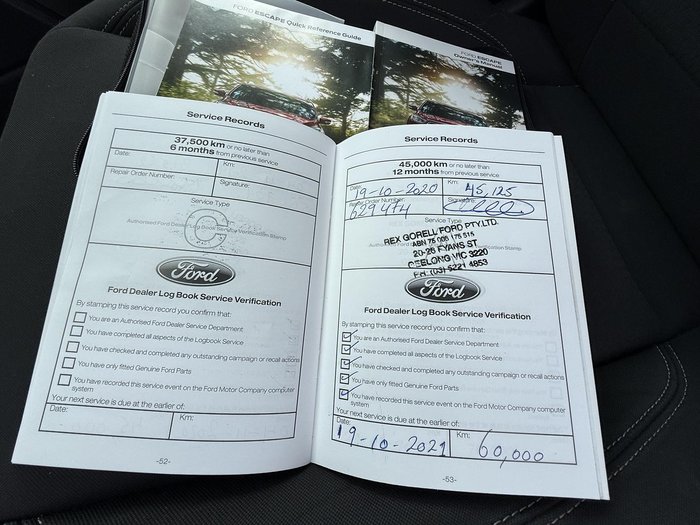 FORD ESCAPE Quick Reference Guide
FORD ESCAPE
Owner's Manual
Service Records
37,500 km or no later than
6 months from previous service
Date:
Km:
Repair Order Number:
Signature:
Service Type
C
Authorised Ford Dealer Service Verification Stamp
Ford
Ford Dealer Log Book Service Verification
By stamping this service record you confirm that:
You are an Authorised Ford Dealer Service Department
You have completed all aspects of the Logbook Service
You have checked and completed any outstanding campaign or recall actions
You have only fitted Genuine Ford Parts
You have recorded this service event on the Ford Motor Company computer
system
Your next service is due at the earlier of:
Date:
Km:
-52-
Service Records
45,000 km or no later than
12 months from previous service
Date:
Km:
19-10-2020
45,125
Repair Order Number:
Signature:
629474
Service Type
REX GORELL FORD PTY.LTD.
ABN 75 005 175 515
20-26 FYANS ST
GEELONG VIC 3220
PH. (03) 5221 4853
Ford
Ford Dealer Log Book Service Verification
By stamping this service record you confirm that:
You are an Authorised Ford Dealer Service Department
You have completed all aspects of the Logbook Service
You have checked and completed any outstanding campaign or recall actions
You have only fitted Genuine Ford Parts
You have recorded this service event on the Ford Motor Company computer
system
Your next service is due at the earlier of:
Date:
Km:
19-10-2021
60,000
-53-